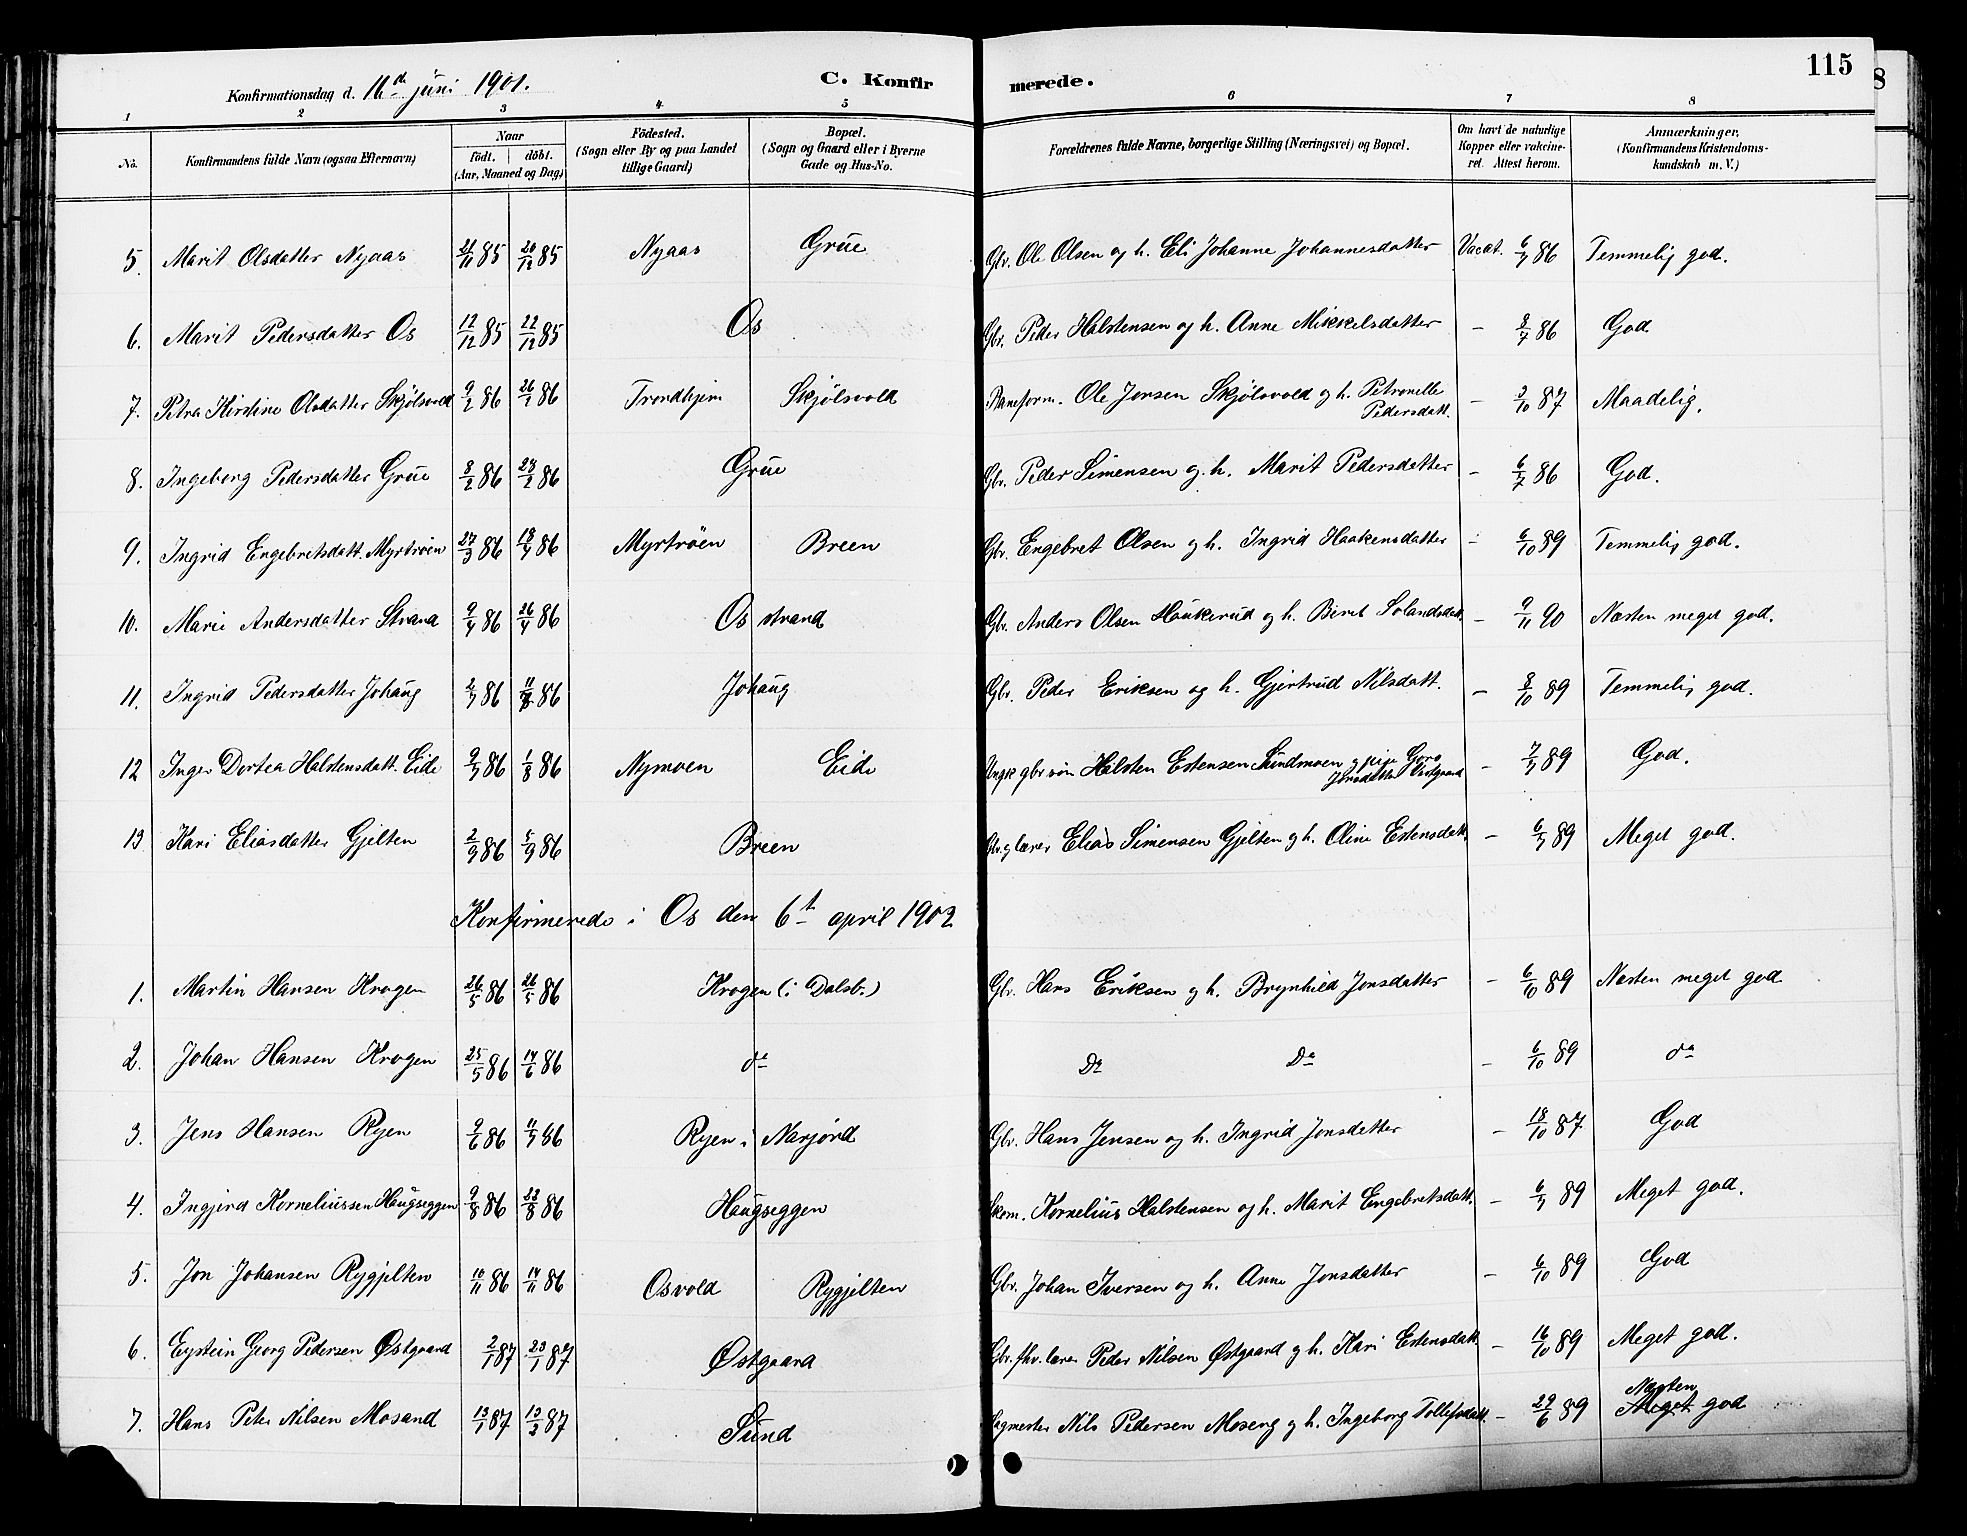 115
Konfirmationsdag d. 16d juni 1901.
C. Konfirmerede.
1 2 3 4 5 6 7 8
No. Konfirmandens fulde Navn (ogsaa Efternavn) Naar födt. döbt. (Aar, Maaned og Dag) Födested. (Sogn eller By og paa Landet tillige Gaard) Bopæl. (Sogn og Gaard eller i Byerne Gade og Hus-No. Forældrenes fulde Navne, borgerlige Stilling (Næringsvei) og Bopæl. Om havt de naturlige Kopper eller vakcineret. Attest herom. Anmærkninger. (Konfirmandens Kristendomskundskab m. V.)
5. Marit Olsdatter Nyaas 21/11 85 20/12 85 Nyaas Grue Gbr. Ole Olsen og h. Eli Johanne Johannesdatter Vacat. 6/7 86 Temmelig god.
6. Marit Pedersdatter Os 12/12 85 22/12 85 Os Gbr. Peder Halstensen og h. Anne Mikkelsdatter – 8/7 86 God
7. Petra Kirstine Olsdatter Skjølsvold 9/2 86 26/2 86 Trondhjem Skjølsvold Baneform. Ole Jonsen Skjølsvold og h. Petronelle Pedersdatt. – 3/10 87 Maadelig.
8. Ingeborg Pedersdatter Grue 8/2 86 28/2 86 Grue Gbr. Peder Simensen og h. Marit Pedersdatter – 6/7 86 God.
9. Ingrid Engebretsdatt. Myrtrøen 27/3 86 18/4 86 Myrtrøen Breen Gbr. Engebret Olsen og h. Ingrid Haakensdatter – 6/10 89 Temmelig god.
10. Marie Andersdatter Strand 9/4 86 26/4 86 Os strand Gbr. Anders Olsen Haukerud og h. Beret Solandsdatt. – 9/11 90 Næsten meget god.
11. Ingrid Pedersdatter Johaug 2/7 86 11/7 86 Johaug Gbr. Peder Eriksen og h. Gjertrud Nilsdatt. – 8/10 89 Temmelig god.
12 Inger Dortea Halstensdatt. Eide 9/7 86 1/8 86 Nymoen Eide Ungk gbr søn Halsten Estensen Sundmoen og pige Goro Jonsdatter Vestgaard – 7/7 89 God.
13 Kari Eliasdatter Gjelten 2/9 86 5/9 86 Breen Gbr. og lærer Elias Simensen Gjelten og h. Oline Estensdatt. – 6/7 89 Meget god.
Konfirmerede i Os den 6t april 1902
1. Martin Hansen Krogen 26/5 86 26/5 86 Krogen (i Dalsb.) Gbr. Hans Eriksen og h. Brynhild Jonsdatter – 6/10 89 Næsten meget god
2. Johan Hansen Krogen 25/5 86 14/6 86 do Do Do – 6/10 89 do
3. Jens Hansen Ryen 9/6 86 11/7 86 Ryen i Narjørd Gbr. Hans Jensen og h. Ingrid Jonsdatter – 18/10 87 God
4. Ingjerd Korneliussen Haugseggen 9/8 86 22/8 86 Haugseggen Skom. Kornelius Halstensen og h. Marit Engebretsdatt. – 6/7 89 Meget god.
5. Jon Johansen Rygjelten 10/11 86 14/11 86 Osvold Rygjelten Gbr. Johan Iversen og h. Anne Jonsdatter – 6/10 89 God
6. Eystein Georg Pedersen Østgaard 2/1 87 23/1 87 Østgaard Gbr. fhv. lærer Peder Nilsen Østgaard og h. Kari Estensdatt. – 16/10 89 Meget god.
7. Hans Peter Nilsen Mosand 13/1 87 13/2 87 Sund Sagmester Nils Pedersen Moseng og h. Ingeborg Tollefsdatt. – 29/6 89 Næsten Meget god